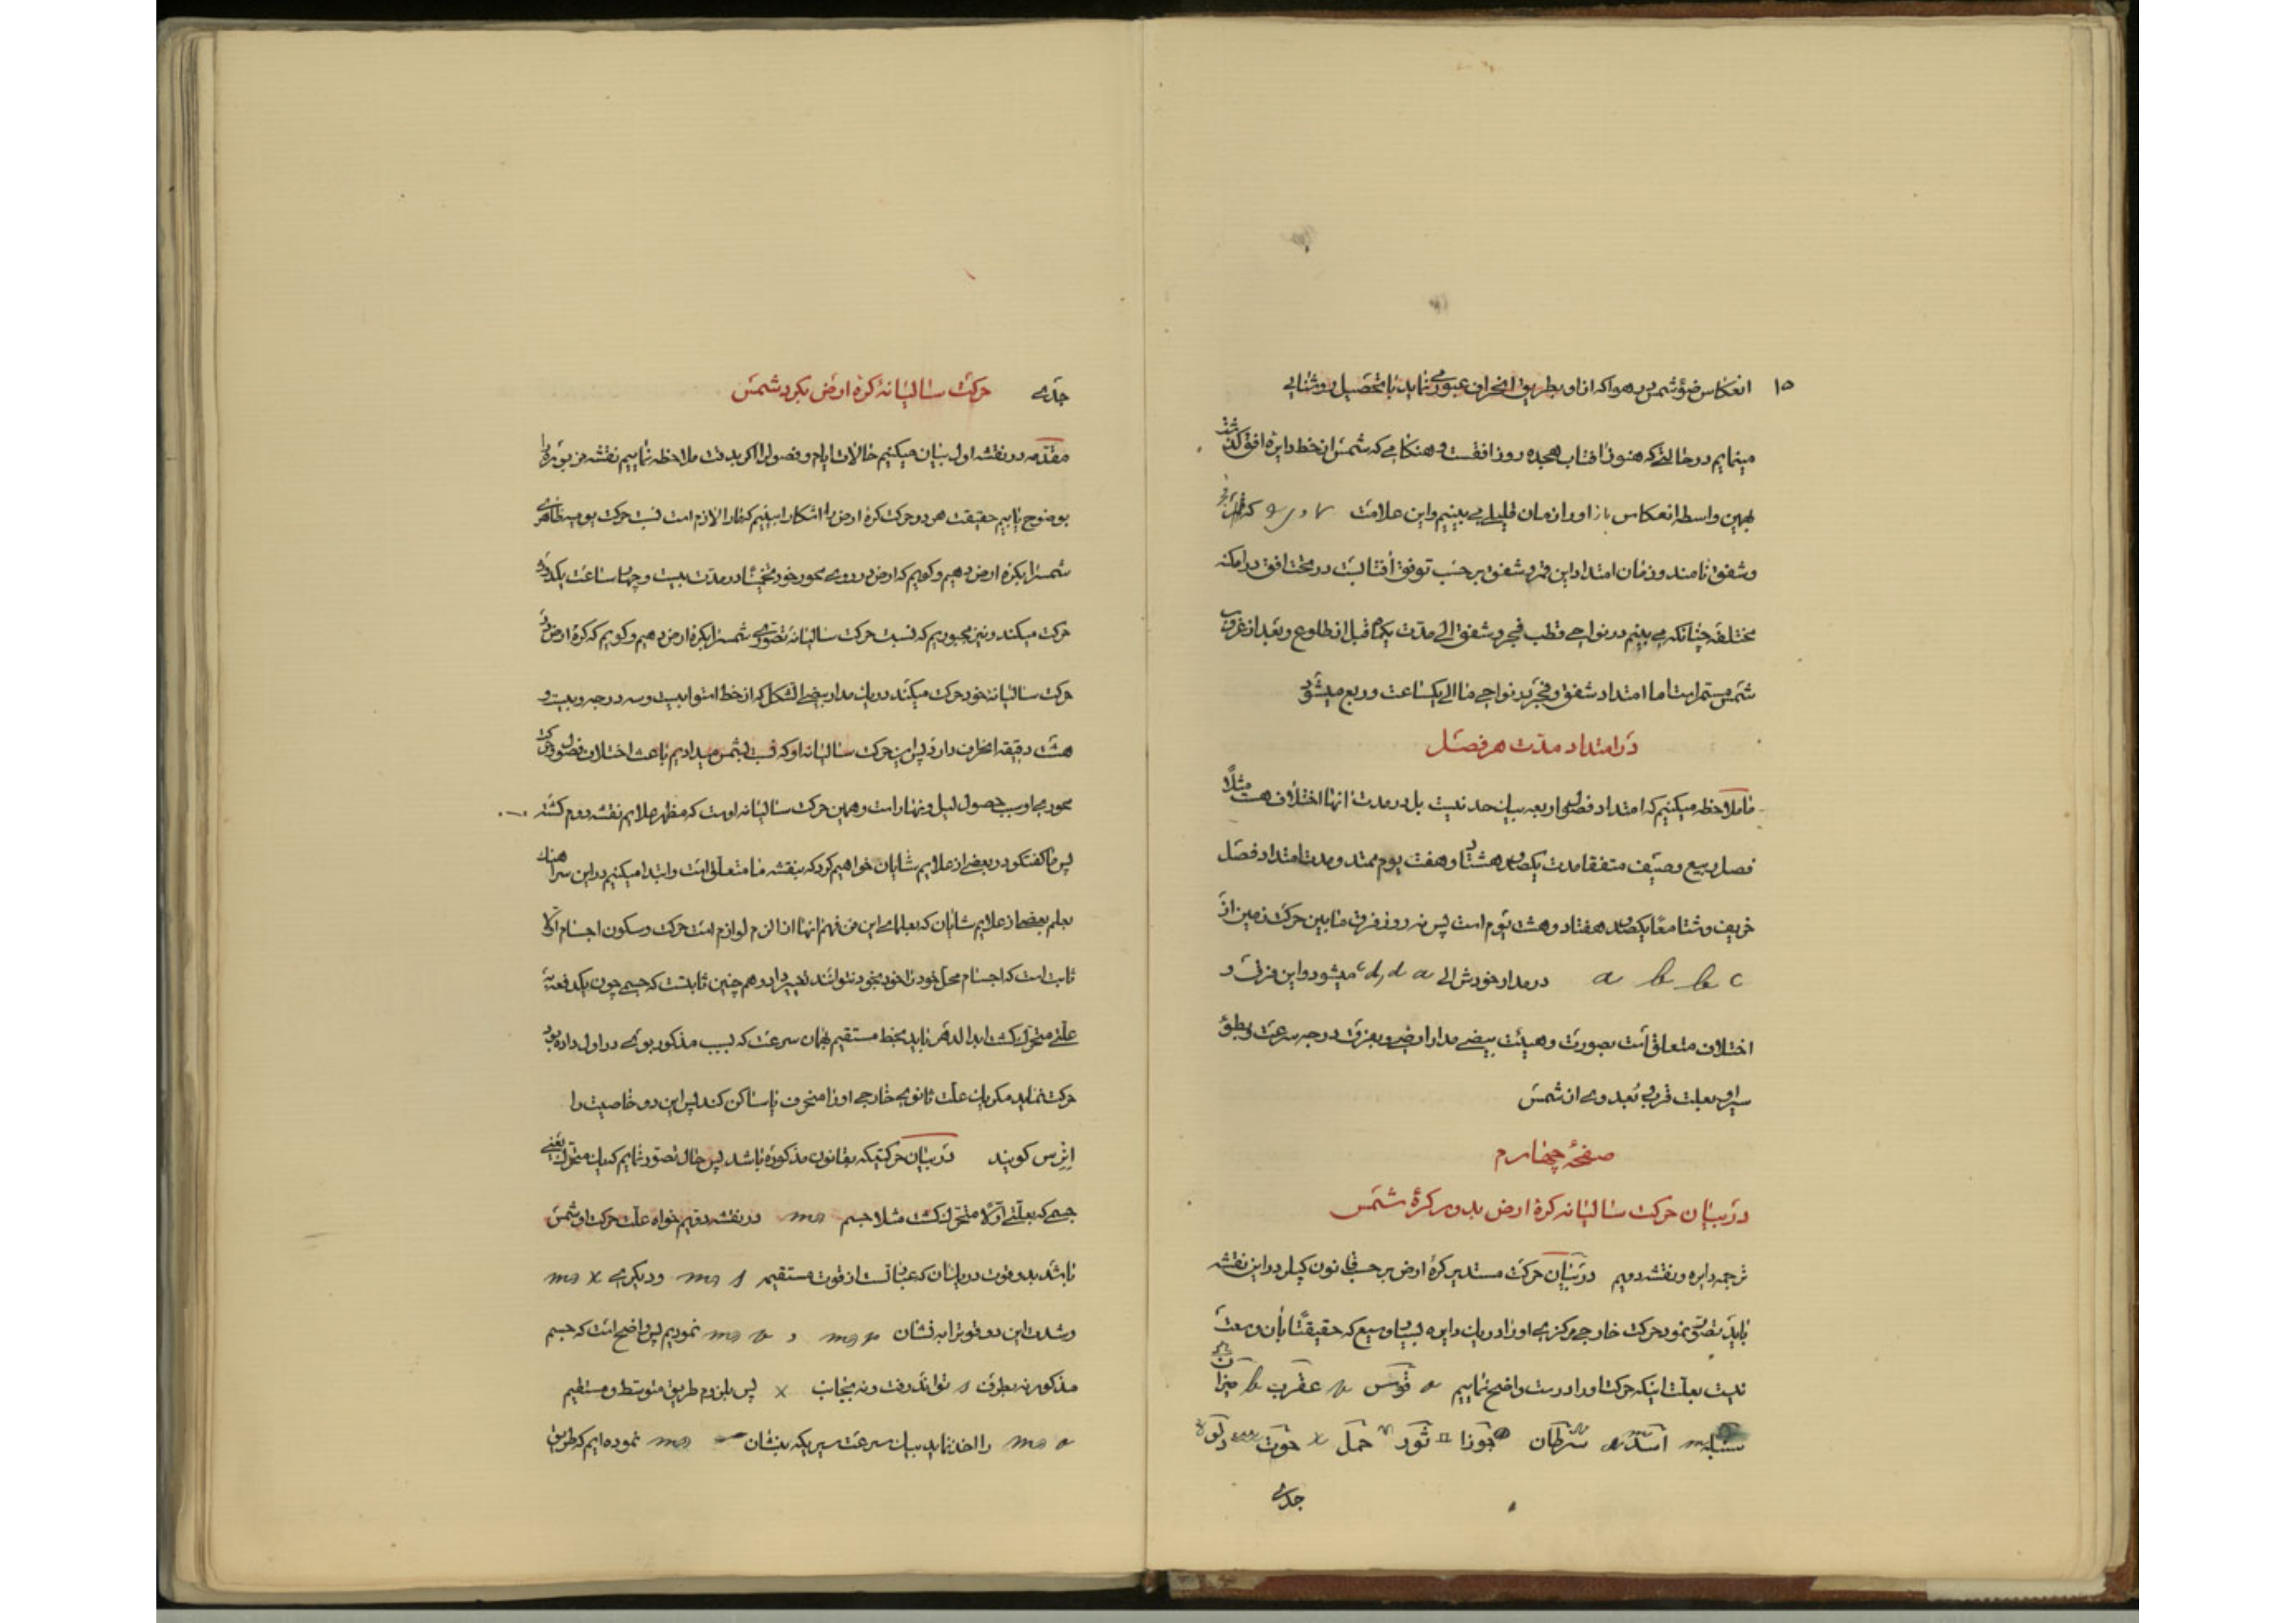 ۱۵ انعکاس ضوء شمس در هوا که از او بطریق انحراف عبور می نماید با تحصیل روشنایی
مینمایم در حالتی که هنوز آفتاب هجده روز افقست و هنکامی که شمس از خط دایره افق کذشت
بهمین واسطه انعکاس باز او را زمان قلیلی می بینیم و این علامت
و شفق نامند و زمان امتداد این فجر و شفق بر حسب توفق آفتابست در تحت افق در امکنه
مختلفه چنانکه می بینم در نواحی قطب فجر و شفق الی مدت یکماه قبل از طلوع و بعد از غروب
شمس مستمر است اما امتداد شفق و فجر در نواحی ما الی یکساعت و ربع میشود
در امتداد مدت هر فصل
ما ملاحظه میکنیم که امتداد فصول اربعه بیک حد نیست بل در مدت انها اختلاف هست مثلاً
فصل ربیع و صیف متفقا مدت یکصد هشتاد و هفت یوم ممتد و مدت امتداد فصل
خریف و شتا معًا یکصد هفتاد و هشت یوم است پس نه روز فرق مابین حرکت زمین از
a b b c در مدار خودش الی c d, d a میشود و این فرق و
اختلاف متعلق است بصورت و هیئت بیضی مدار ارضی و بفرق درجه سرعت و بطؤ
سیر او بعلت قرب و بعد وی از شمس
صفحهٔ چهارم
در بیان حرکت سالیانه کرهٔ ارض بدور کرهٔ شمس
ترجمه دایره و نقشه دویم در بیان حرکت مستدیر کرهٔ ارض بر حسب قانون کپلر در این نقشه
باید تصور نمود حرکت خارجی مرکزی او را در یک دایره بسیار وسیع که حقیقتًا بان وسعت
نیست بعلت اینکه حرکت او را درست واضح نماییم قوس عقرب میزان
سنبله اسد سرطان جوزا ثور حمل حوت دلو
جدی
جدی حرکت سالیانهٔ کرهٔ ارض بکرد شمس
مقدمه در نقشه اول بیان میکنیم حالات ایام و فصول را اکر بدقت ملاحظه نماییم نقشه مزبور را
بوضوح یابیم حقیقت هر دو حرکت کرهٔ ارض را اشکار ببینیم که ما را لازم است نسبت حرکت یومیه ظاهری
شمس را بکره ارض دهیم و کوییم که ارض در روی محور خود تخمیناً در مدت بیست و چهار ساعت یکدوره
حرکت میکند و نیز مجبوریم که نسبت حرکت سالیانه تصوری شمس را بکره ارض دهیم و کوییم که کرهٔ ارض در
حرکت سالیانه خود حرکت میکند در یک مدار بیضی الشکل که از خط استوا بیست و سه درجه و بیست و
هشت دقیقه انحراف دارد پس این حرکت سالیانه او که نسبت بشمس میدادیم باعث اختلاف فصول و حرکت
محوری او سبب حصول لیل و نهار است و همین حرکت سالیانه اوست که مظهر علایم نقشه دوم کشته
پس ما کفتکو در بعضی از علایم شایان خواهیم کرد که بنقشه ما متعلق است و ابتدا میکنیم در این هنکام
بعلم بعضی از علایم شایان که بعلمای این فن فهم انها از الزم لوازم است حرکت و سکون اجسام اولا
ثابت است که اجسام محل خود را خود بخود نتوانند تغییر داد و هم چنین ثابتست که جسمی چون یکدفعه به
علتی متحرک کشت ابد الدهر باید بخط مستقیم بهمان سرعت که بسبب مذکور بوی در اول داده بود
حرکت نماید مکر یک علت ثانوی خارجی او را منحرف یا ساکن کند پس این دو خاصیت را
انرس کویند در بیان حرکتیکه بقانون مذکوره باشد پس حال تصور نمایم که یک متحرک یعنی
جسمی که بعلتی اولا متحرک کشت مثلا جسم m در نقشه دویم خواه علت حرکت او شمس
باشد بدو قوت در یک ان که عبارتست از قوت مستقیم m s و دیکری m x
و شدت این دو قوت را به نشان m r و m v نمودیم پس واضح است که جسم
مذکور نه بطرف s تواند رفت و نه بجانب x پس بلزوم طریق متوسط و مستقیم
m a را اخذ نماید بیک سرعت سیریکه بنشان m نموده ایم که طریق